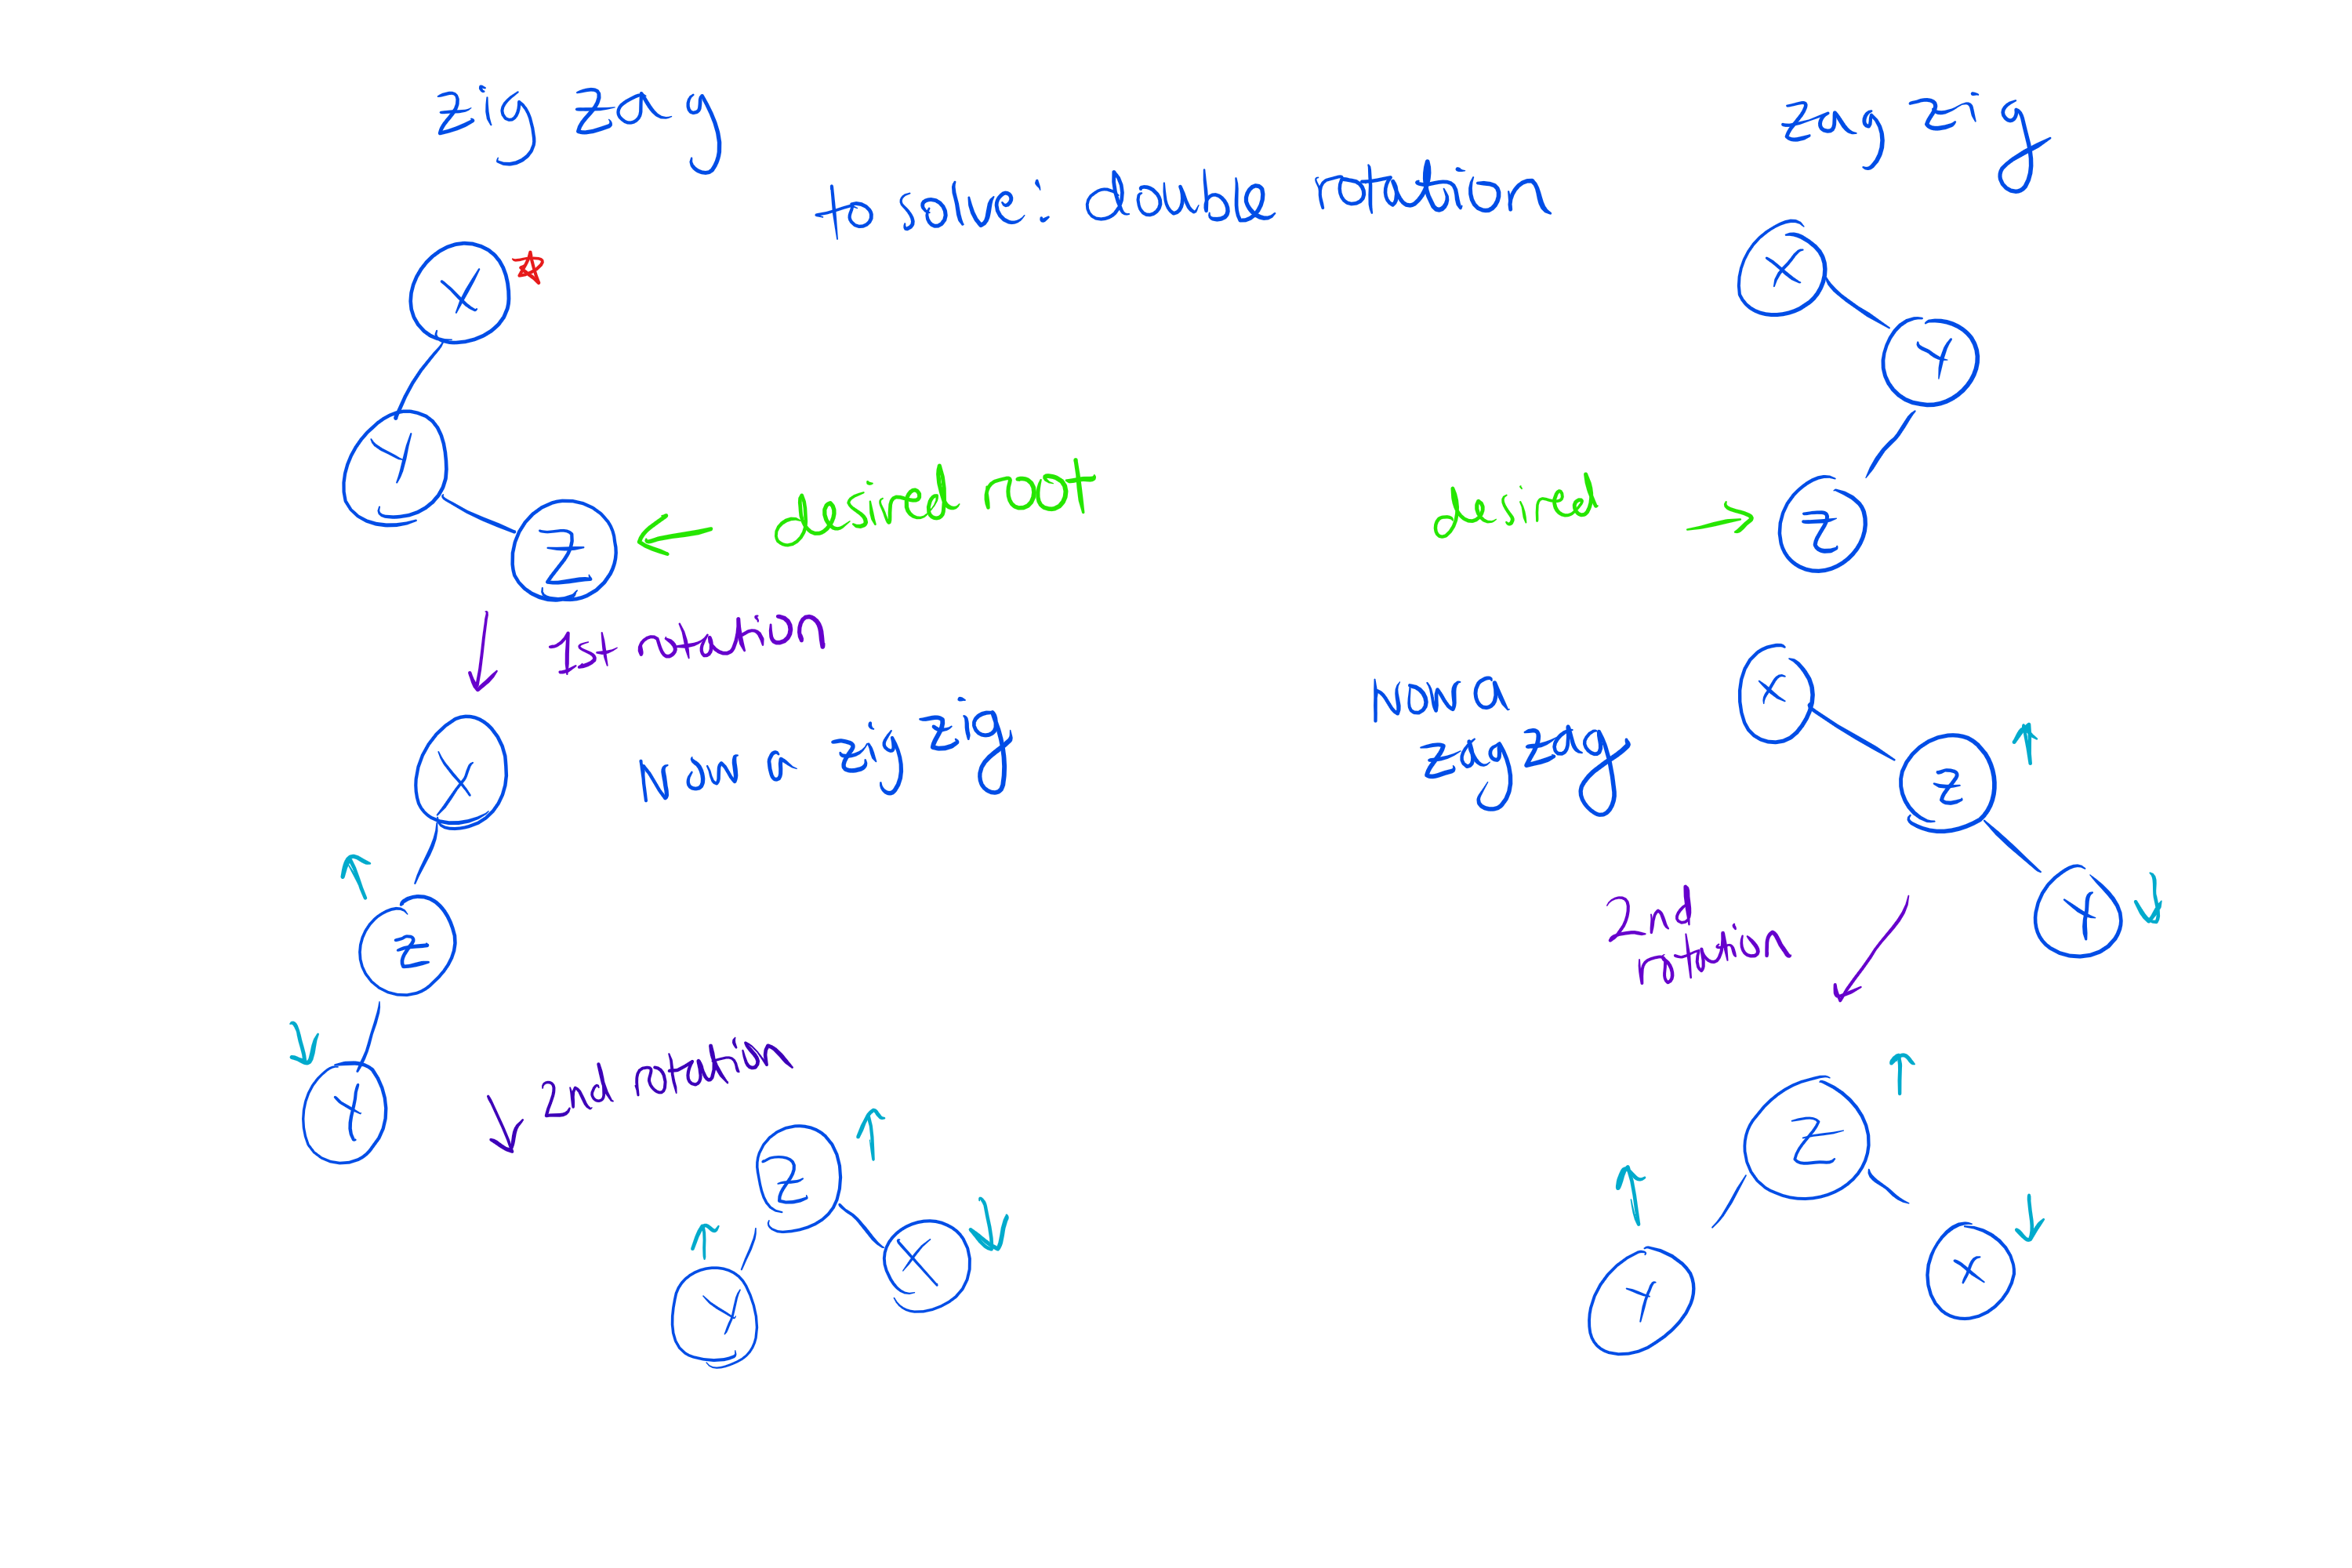 zig zag
zag zig
to solve: double rotation
X
Y
Z
desired root
1st rotation
Now a zig zig
X
Z
Y
2nd rotation
Z
Y
X
X
Y
desired
Z
Now a
zag zag
X
Z
Y
2nd
rotation
Z
Y
X